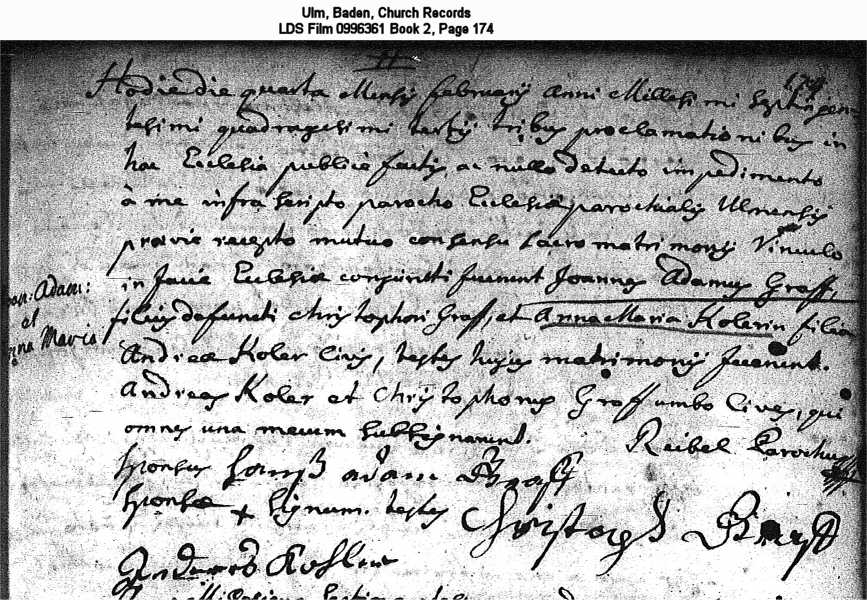 Ulm, Baden, Church Records
LDS Film 0996361 Book 2, Page 174
Hodie die quarta Mensis february Anni Millesimi Septingen-
tesimi quadragesimi tertij tribus proclamationibus in
hac Ecclesia publicè factis, ac nullo detecto impedimento
à me infra scripto parocho Ecclesiæ parochialis Ulmensis
prævie recepto mutuo consensu sacro matrimonij Vinculo
in facie Ecclesiæ conjuncti fuerunt Joannes Adamus Graff,
Adam:
filius defuncti Christophori Graff, et Anna Maria Kolerin filia
et
Maria
Andreæ Koler Civis, testes hujus matrimonij fuerunt.
Andreas Koler et Christophorus Graff ambo Cives, qui
omnes una mecum subsignarunt.
Reibel Parochus
sponsus Hanß adam Graff
sponsæ + signum. testes Christoph Graff
Anderes Kohler